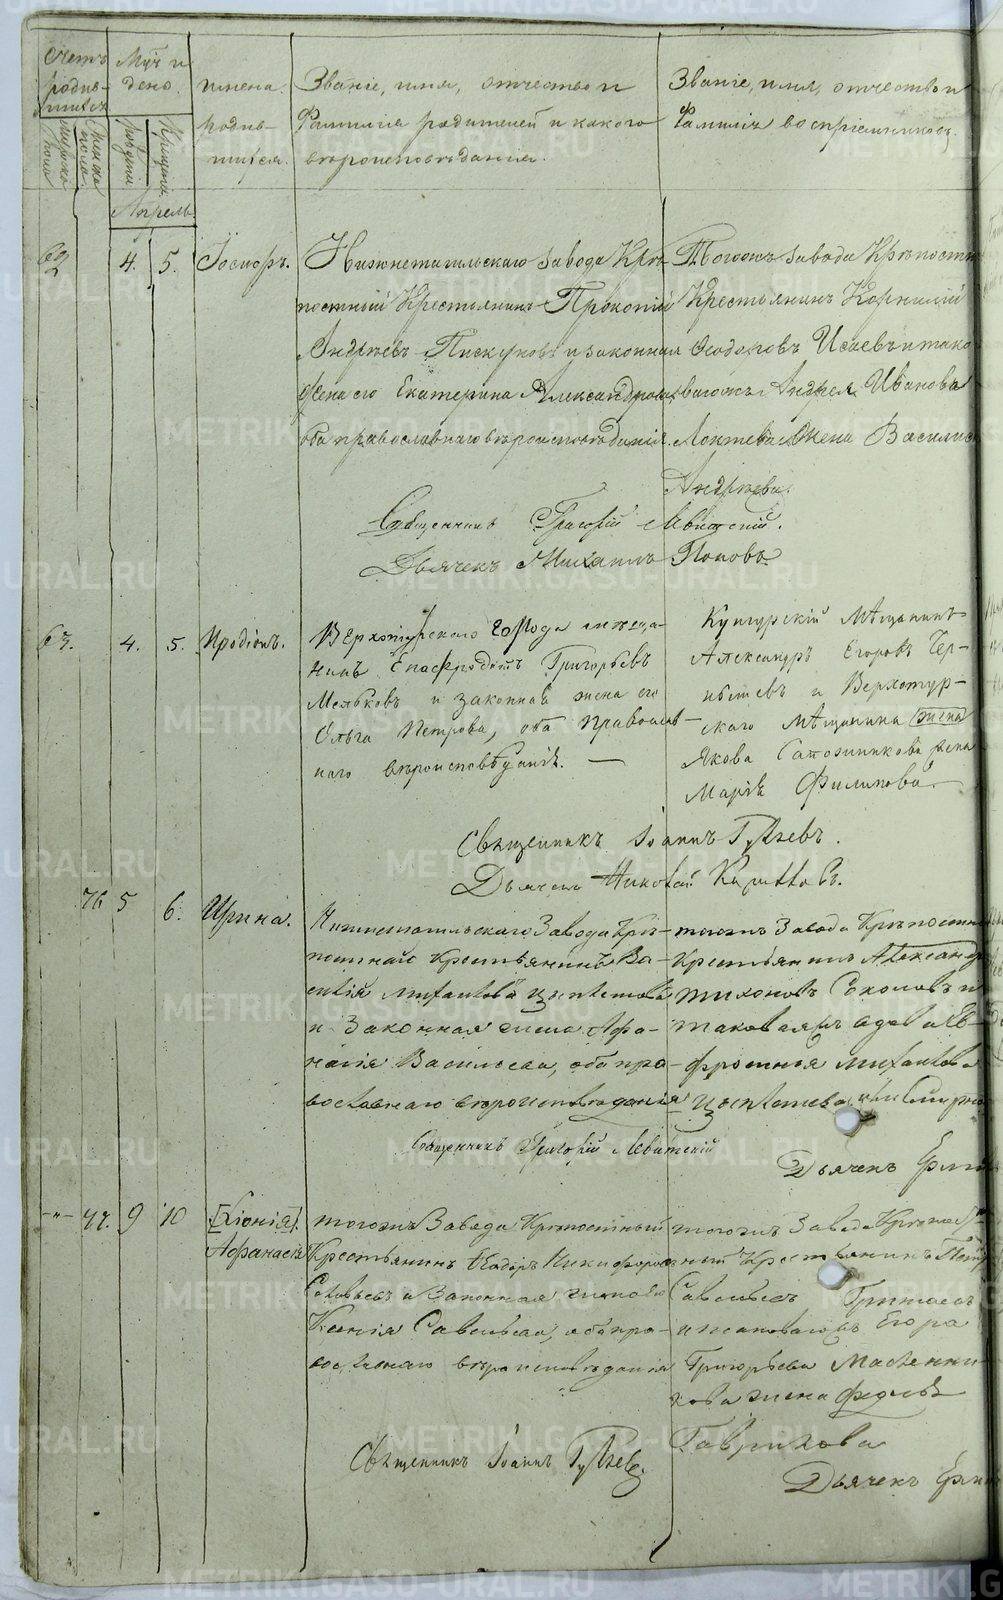 Счетъ родив-шихся
Мужеска пола
Женска пола
Мцъ и день.
рожденія
Крещенія
Апрель
имена родив-шихся.
Званіе, имя, отчество и
Фамилія родителей и какого
вѣроисповѣданія.
Званіе, имя, отчество и
Фамилія воспріемниковъ.
62 4. 5. Іосифъ.
Нижнетагильскаго завода Крѣ-
постный Крестьянинъ Прокопій
Андреевъ Пискуновъ и законная
жена его Екатерина Александрова,
оба православнаго вѣроисповѣданія.
Тогожъ завода Крѣпостн
Крестьянинъ Корнилій
Ѳеодоровъ Исаевъ и тако
вагожъ Андрея Иванова
Локтева жена Василис
Андреева.
Священникъ Григорій Левитскій.
Дьячекъ Михаилъ Поповъ
63. 4. 5. Иродіонъ.
Верхотурскаго города мѣща-
нинъ Епафродитъ Григорьевъ
и законная жена его
Ольга Петрова, оба православ-
наго вѣроисповѣданія. —
Кунгурскій Мѣщанинъ
Александръ Егоровъ Чер-
нышевъ и Верхотур-
скаго Мѣщанина (жена)
Якова Сапожникова жена
Марія Филипова.
Священникъ Іоаннъ
Дьячекъ Николай
76 5 6. Ирина.
Нижнетагильскаго Завода Крѣ-
постнаго Крестьянинъ Ва-
силія Михайлова
и Законная жена Афа-
насія Васильева, оба пра-
вославнаго вѣроисповѣданія
тогожъ Завода Крѣпостн
Крестьянинъ Александр
Тихоновъ Соколовъ и
таковаяжъ вдова Ев-
фросинья Михайлова
или Смирно
Священникъ Григорій Левитскій
Дьячекъ
-"- 77. 9 10 [Хіонія].
Афанасія
тогожъ Завода Крѣпостный
Крестьянинъ Ѳедоръ Никифоровъ
Соловьевъ и Законная жена его
Ксенія Савельева, оба пра-
вославнаго вѣроисповѣданія
тогожъ Завода Крѣпост-
ный Крестьянинъ Петр
Савельевъ
и таковагожъ Егора
Григорьева Масленни-
кова жена Федосья
Гаврилова
Священникъ Іоаннъ
Дьячекъ
METRIKI.GASO-URAL.RU